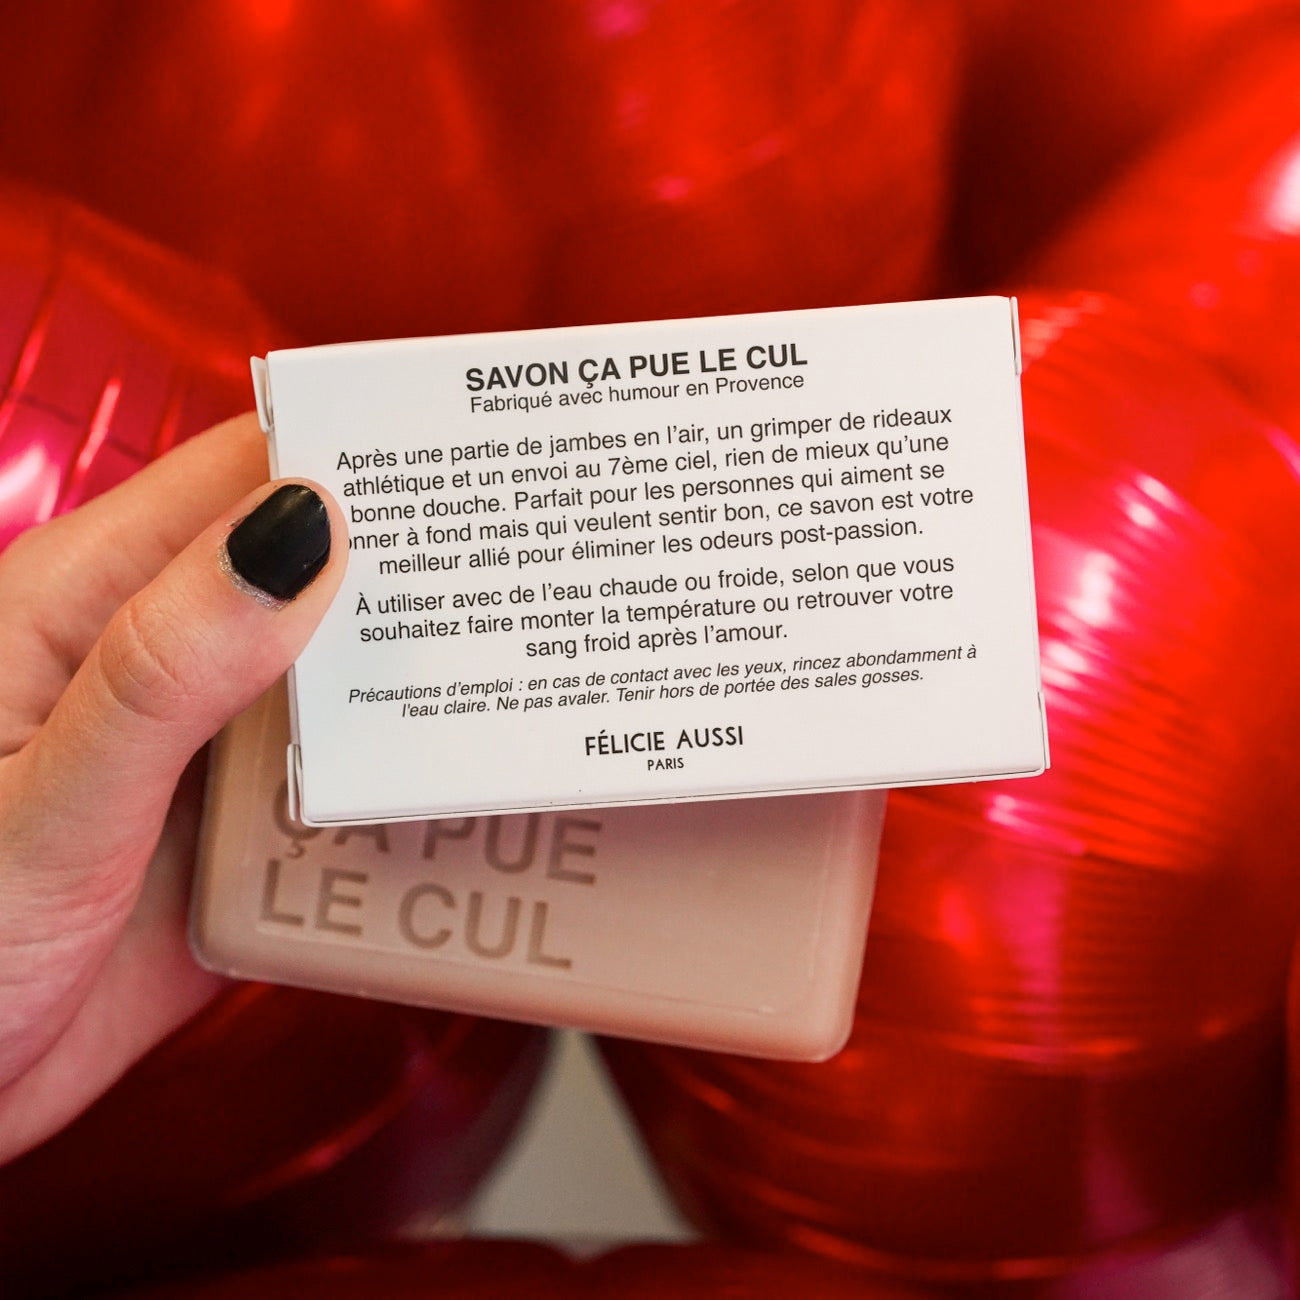 SAVON ÇA PUE LE CUL
Fabriqué avec humour en Provence
Après une partie de jambes en l'air, un grimper de rideaux
athlétique et un envoi au 7ème ciel, rien de mieux qu'une
bonne douche. Parfait pour les personnes qui aiment se
à fond mais qui veulent sentir bon, ce savon est votre
meilleur allié pour éliminer les odeurs post-passion.
À utiliser avec de l'eau chaude ou froide, selon que vous
souhaitez faire monter la température ou retrouver votre
sang froid après l'amour.
Précautions d'emploi : en cas de contact avec les yeux, rincez abondamment à
l'eau claire. Ne pas avaler. Tenir hors de portée des sales gosses.
FÉLICIE AUSSI
PARIS
ÇA PUE
LE CUL